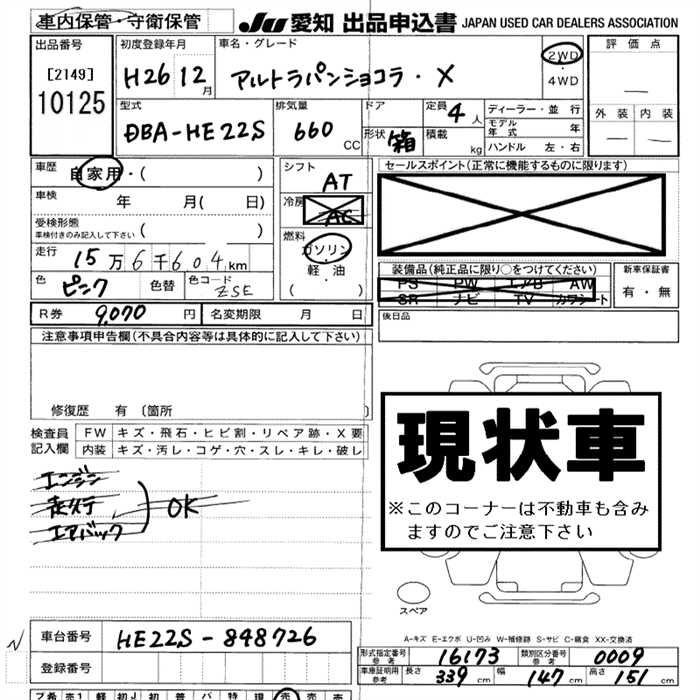 車内保管・守衛保管 JU 愛知 出品申込書 JAPAN USED CAR DEALERS ASSOCIATION
出品番号 初度登録年月 車名・グレード 2WD 評価点
[2149] H26 12月 アルトラパンショコラ・X ・ 4WD —
10125
型式 排気量 ドア 定員 4人 ディーラー・並行 外装 内装
DBA-HE22S 660 CC 形状 箱 積載 kg モデル年式 年 — —
ハンドル 左・右
車歴 自家用・( ) シフト AT セールスポイント(正常に機能するものに限ります)
車検 年 月( 日) 冷房 AC
受検形態 ( )
車検付きのみ記入して下さい
燃料 ガソリン・軽油 ( )
走行 15万6千604km
色 ピンク 色替 色コード ZSE 装備品(純正品に限り○をつけてください) 新車保証書
PS PW エアB AW 有・無
SR ナビ TV カワシート
R券 9,070円 名変期限 月 日 後日品
注意事項申告欄(不具合内容等は具体的に記入して下さい)
現状車
※このコーナーは不動車も含み
ますのでご注意下さい
修復歴 有 〔箇所 〕
検査員 FW キズ・飛石・ヒビ割・リペア跡・X要
記入欄 内装 キズ・汚レ・コゲ・穴・スレ・キレ・破レ
エンジン
走行
エアバック
OK
スペア
A-キズ E-エクボ U-凹み W-補修跡 S-サビ C-腐食 XX-交換済
車台番号 HE22S-848726
登録番号
形式指定番号 参考 16173 類別区分番号 参考 0009
車庫証明用 参考 長さ 339cm 幅 147cm 高さ 151cm